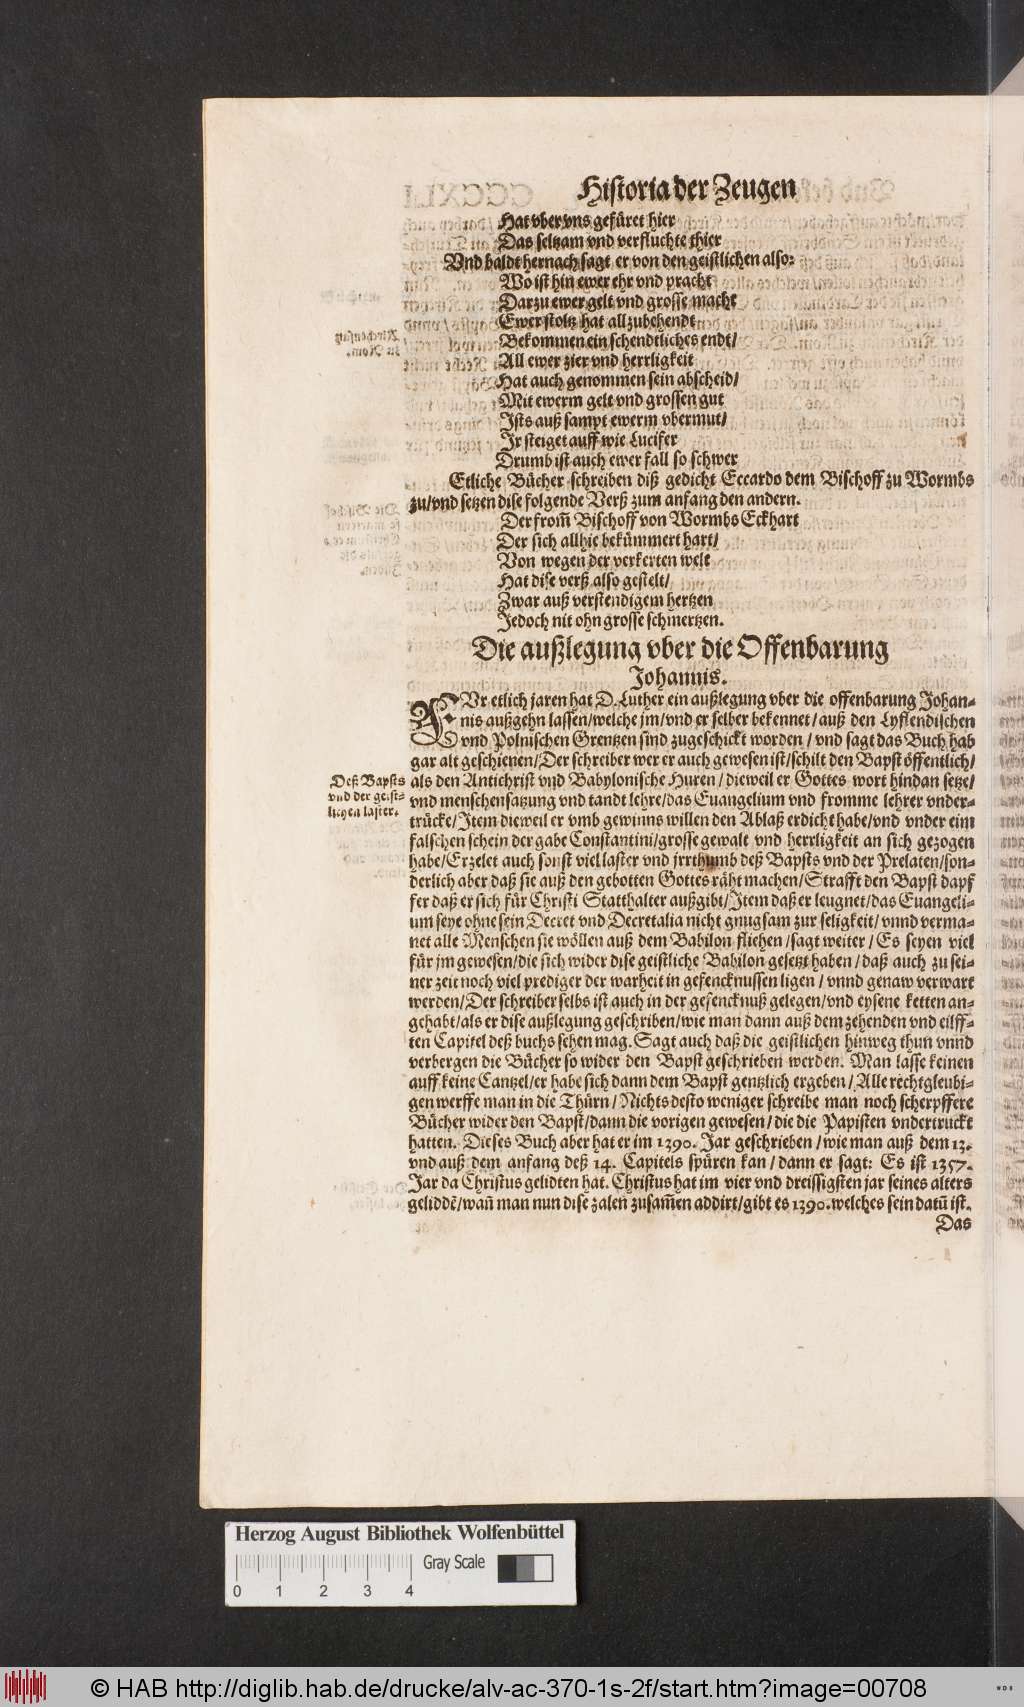 Historia der Zeugen
Hat vber vns gefüret hier
Das seltzam vnd verfluchte thier
Vnd baldt hernach sagt er von den geistlichen also:
Wo ist hin ewer ehr vnd pracht
Darzu ewer gelt vnd grosse macht
Ewer stoltz hat all zubehendt
Bekommen ein schendtliches endt/
All ewer zier vnd herrligkeit
Hat auch genommen sein abscheid/
Mit ewerm gelt vnd grossen gut
Ists auß sampt ewerm vbermut/
Ir steiget auff wie Lucifer
Drumb ist auch ewer fall so schwer
Etliche Bücher schreiben diß gedicht Eccardo dem Bischoff zu Wormbs
zu/vnd setzen dise folgende Verß zum anfang den andern.
Der from̃ Bischoff von Wormbs Eckhart
Der sich allhie bekümmert hart/
Von wegen der verkerten welt
Hat dise verß also gestelt/
Zwar auß verstendigem hertzen
Jedoch nit ohn grosse schmertzen.
Die außlegung vber die Offenbarung
Johannis.
FVr etlich jaren hat D. Luther ein außlegung vber die offenbarung Johan-
nis außgehn lassen/welche jm/vnd er selber bekennet/auß den Lyflendischen
vnd Polnischen Grentzen sind zugeschickt worden/vnd sagt das Buch hab
gar alt geschienen/Der schreiber wer er auch gewesen ist/schilt den Bapst öffentlich/
als den Antichrist vnd Babylonische Huren/dieweil er Gottes wort hindan setze/
vnd menschensatzung vnd tandt lehre/das Euangelium vnd fromme lehrer vnder-
trücke/Item dieweil er vmb gewinns willen den Ablaß erdicht habe/vnd vnder eim
falschen schein der gabe Constantini/grosse gewalt vnd herrligkeit an sich gezogen
habe/Erzelet auch sonst viel laster vnd jrrthumb deß Bapsts vnd der Prelaten/son-
derlich aber daß sie auß den gebotten Gottes räht machen/Strafft den Bapst dapf
fer daß er sich für Christi Statthalter außgibt/Item daß er leugnet/das Euangeli-
um seye ohne sein Decret vnd Decretalia nicht gnugsam zur seligkeit/vnnd verma-
net alle Menschen sie wöllen auß dem Babilon fliehen/sagt weiter/Es seyen viel
für jm gewesen/die sich wider dise geistliche Babilon gesetzt haben/daß auch zu sei-
ner zeit noch viel prediger der warheit in gefencknussen ligen/vnnd genaw verwart
werden/Der schreiber selbs ist auch in der gefencknuß gelegen/vnd eysene ketten an-
gehabt/als er dise außlegung geschriben/wie man dann auß dem zehenden vnd eilff-
ten Capitel deß buchs sehen mag. Sagt auch daß die geistlichen hinweg thun vnnd
verbergen die Bücher so wider den Bapst geschrieben werden. Man lasse keinen
auff keine Cantzel/er habe sich dann dem Bapst gentzlich ergeben/Alle rechtgleubi-
gen werffe man in die Thürn/Nichts desto weniger schreibe man noch scherpffere
Bücher wider den Bapst/dann die vorigen gewesen/die die Papisten vndertruckt
hatten. Dieses Buch aber hat er im 1390. Jar geschrieben/wie man auß dem 13.
vnd auß dem anfang deß 14. Capitels spüren kan/dann er sagt: Es ist 1357.
Jar da Christus gelidten hat. Christus hat im vier vnd dreissigsten jar seines alters
geliddẽ/wañ man nun dise zalen zusam̃en addirt/gibt es 1390. welches sein datū ist.
Das
Deß Bapsts
vnd der geist-
lichen laster.
Herzog August Bibliothek Wolfenbüttel
Gray Scale
0 1 2 3 4
© HAB http://diglib.hab.de/drucke/alv-ac-370-1s-2f/start.htm?image=00708